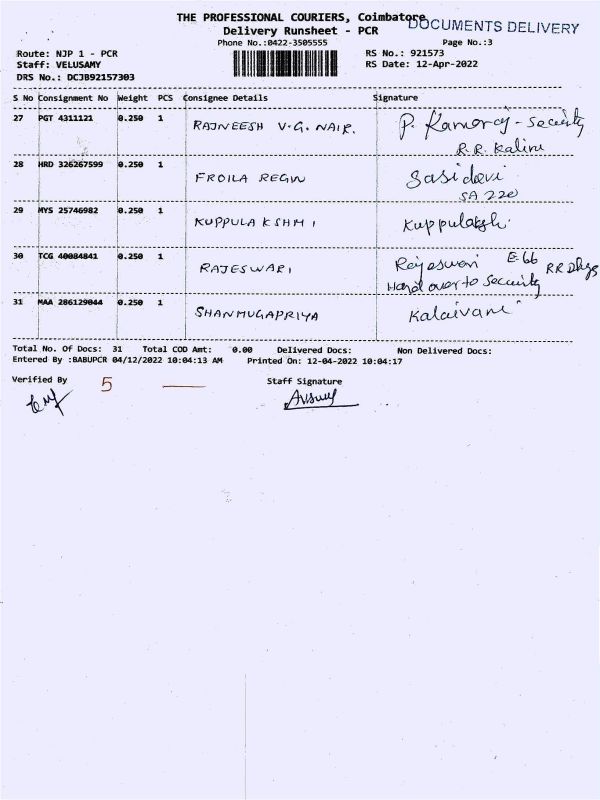 THE PROFESSIONAL COURIERS, Coimbatore
DOCUMENTS DELIVERY
Delivery Runsheet - PCR
Phone No.:0422-3505555
Page No.:3
Route: NJP 1 - PCR
RS No.: 921573
Staff: VELUSAMY
RS Date: 12-Apr-2022
DRS No.: DCJB92157303
S No Consignment No Weight PCS Consignee Details Signature
27 PGT 4311121 0.250 1 RAJNEESH V.G. NAIR. P. Kamaraj - Security
R.R. Kalin
28 HRD 326267599 0.250 1 FROILA REGIN Sasi devi
SA 220
29 MYS 25746982 0.250 1 KUPPULAKSHMI Kuppulaksh
30 TCG 40084841 0.250 1 RAJESWARI Rajeswari E-66
Hand over to Security
31 MAA 286129044 0.250 1 SHANMUGAPRIYA Kalaivani
Total No. Of Docs: 31 Total COD Amt: 0.00 Delivered Docs: Non Delivered Docs:
Entered By :BABUPCR 04/12/2022 10:04:13 AM Printed On: 12-04-2022 10:04:17
Verified By 5 Staff Signature